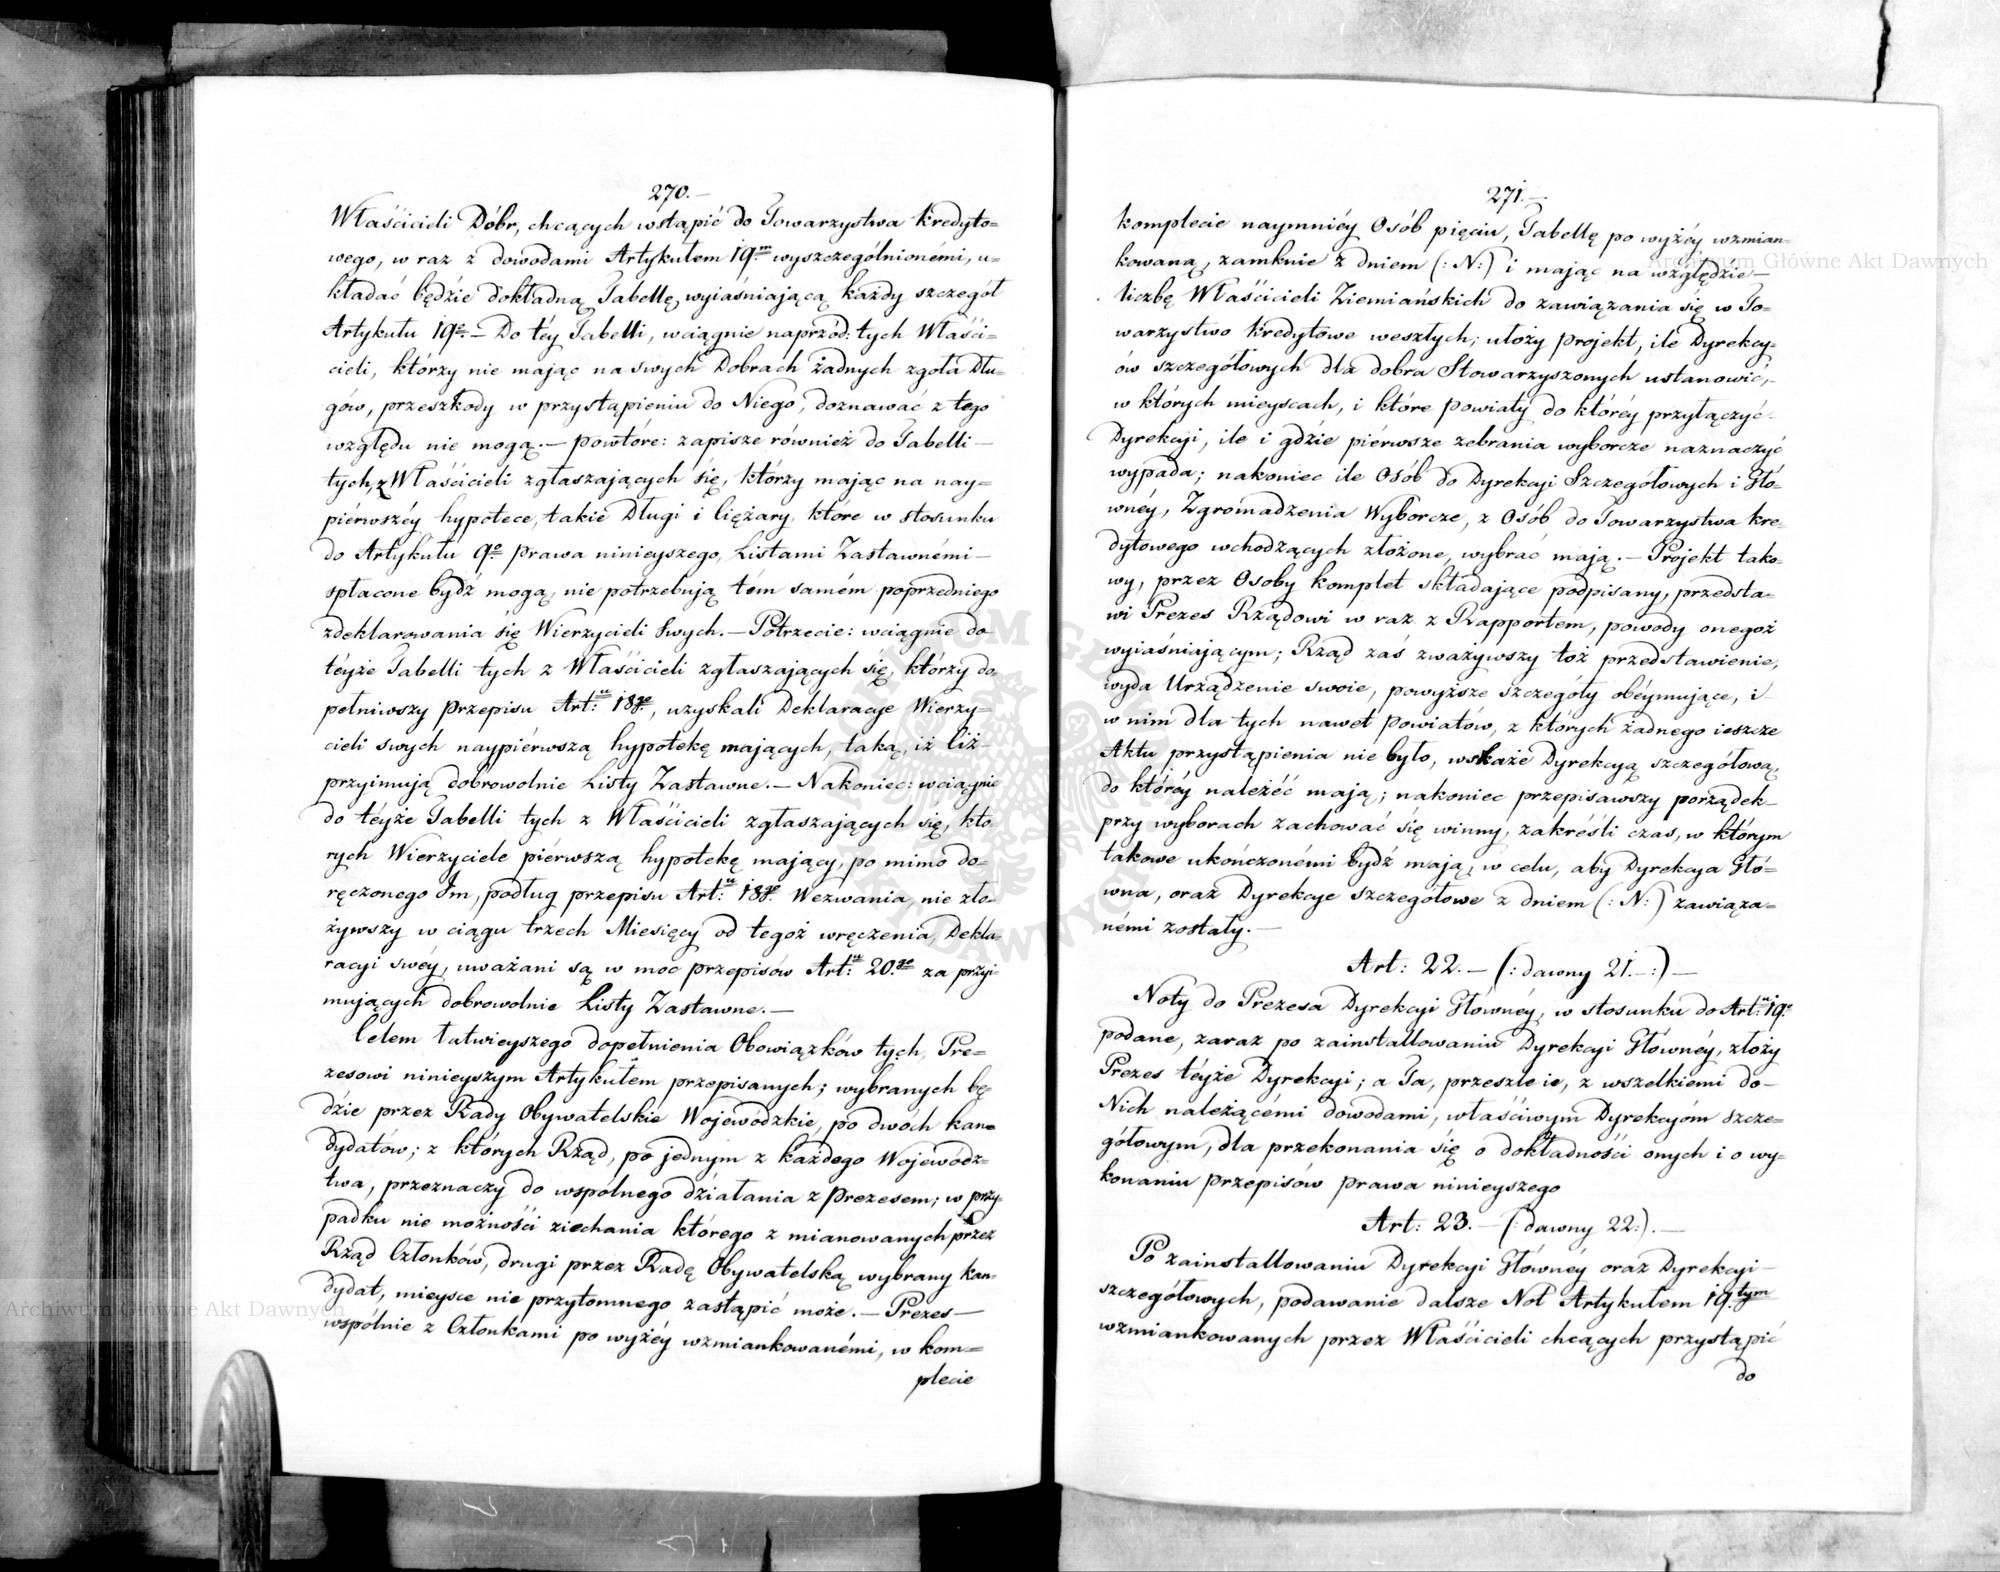 270.—
Właścicieli Dóbr, chcących wstąpić do Towarzystwa kredyto=
wego, w raz z dowodami Artykułem 19.m wyszczególnionémi, u=
kładać będzie dokładną Tabellę, wyiaśniającą każdy szczegół
Artykułu 19.o— Do téy Tabelli, wciągnie naprzód: tych Właści=
cieli, którzy nie mając na swych Dobrach żadnych zgoła Dłu=
gów, przeszkody w przystąpieniu do Niego, doznawać z tego
względu nie mogą.— powtóre: zapisze również do Tabelli—
tych, z Właścicieli zgłaszających się, którzy mając na nay=
piérwszéy hypotece, takie Długi i Ciężary, które w stosunku
do Artykułu 9.o prawa ninieyszego, Listami Zastawnémi—
spłacone bydź mogą, nie potrzebują tém samém poprzedniego
zdeklarowania się Wierzycieli swych.— Potrzecie: wciągnie do
téyże Tabelli tych z Właścicieli zgłaszających się, którzy do=
pełniwszy przepisu Art:u 18go, uzyskali Deklaracye Wierzy=
cieli swych naypiérwszą hypotekę mających, taką, iż Ciż—
przyimują dobrowolnie Listy Zastawne.— Nakoniec: wciągnie
do téyże Tabelli tych z Właścicieli zgłaszających się, któ=
rych Wierzyciele piérwszą hypotekę mający, po mimo do=
ręczonego Im, podług przepisu Art:u 18go Wezwania, nie zło=
żywszy w ciągu trzech Miesięcy od tegoż wręczenia, Dekla=
racyi swéy, uważani są w moc przepisów Art:u 20.go za przyi=
mujących dobrowolnie Listy Zastawne.—
Celem łatwieyszego dopełnienia Obowiązków tych, Pre=
zesowi ninieyszym Artykułem przepisanych; wybranych bę=
dzie przez Rady Obywatelskie Wojewódzkie, po dwóch kan=
dydatów; z których Rząd, po jednym z każdego Wojewódz=
twa, przeznaczy do wspólnego działania z Prezesem; w przy=
padku nie możności ziechania którego z mianowanych przez
Rząd Członków, drugi przez Radę Obywatelską wybrany kan=
dydat, mieysce nie przytomnego zastąpić może.— Prezes—
wspólnie z Członkami po wyżéy wzmiankowanémi, w kom=
plecie
271.—
komplecie naymniéy Osób pięciu, Tabellę po wyżéy wzmian=
kowaną, zamknie z dniem (: N:) i mając na względzie—
liczbę Właścicieli Ziemiańskich do zawiązania się w To=
warzystwo kredytowe weszłych; ułoży projekt, ile Dyrekcy=
ów szczegółowych dla dobra Stowarzyszonych ustanowić,—
w których mieyscach, i które powiaty do któréy przyłączyć
Dyrekcji, ile i gdzie piérwsze zebrania wyborcze naznaczyć
wypada; nakoniec ile Osób do Dyrekcji Szczegółowych i Głó=
wnéy, Zgromadzenia Wyborcze, z Osób do Towarzystwa kre=
dytowego wchodzących złożone, wybrać mają.— Projekt tako=
wy, przez Osoby komplet składające podpisany, przedsta=
wi Prezes Rządowi w raz z Rapportem, powody onegoż
wyiaśniającym; Rząd zaś zważywszy toż przedstawienie,
wyda Urządzenie swoie, powyższe szczegóły obéymujące, i
w nim dla tych nawet powiatów, z których żadnego ieszcze
Aktu przystąpienia nie było, wskaże Dyrekcyą szczegółową,
do któréy należéć mają; nakoniec przepisawszy porządek—
przy wyborach zachować się winny, zakréśli czas, w którym
takowe ukończonémi bydź mają, w celu, aby Dyrekcya Głó=
wna, oraz Dyrekcye szczegółowe z dniem (: N:) zawiąza=
némi zostały.—
Art: 22.— (: dawny 21.—:)—
Noty do Prezesa Dyrekcji Główney, w stosunku do Art:u 19.o
podane, zaraz po zainstallowaniu Dyrekcji Główney, złoży
Prezes téyże Dyrekcji; a Ta, przeszle ie, z wszelkiemi do—
Nich należącémi dowodami, właściwym Dyrekcyóm szcze=
gółowym, dla przekonania się o dokładności onych i o wy=
konaniu przepisów prawa ninieyszego
Art: 23.— (: dawny 22:).—
Po zainstallowaniu Dyrekcji Główney oraz Dyrekcji—
szczegółowych, podawanie dalsze Not Artykułem 19.tym
wzmiankowanych przez Właścicieli chcących przystąpić
do
Archiwum Główne Akt Dawnych
Archiwum Główne Akt Dawnych